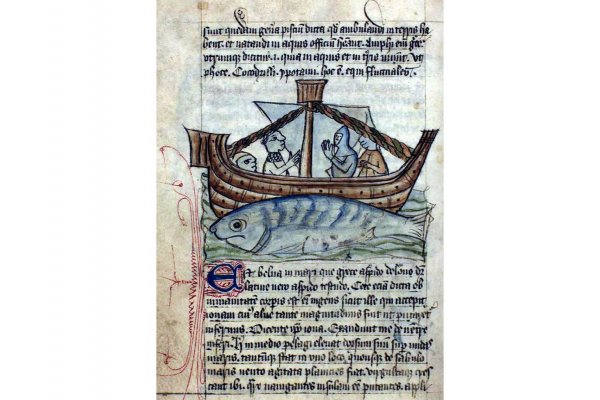 sunt quedam gen̄a piscium dicta qđ ambulandi in terris ha
bent. et natandi in aquis officium h̄ant. Amphi em̄ gre
utrumque dicitur .i. quia in aquis et in t̄ris uiuunt. ut
phoce. Cocodrilli. ypotami. hoc ē. equi fluctuales.
Est belua in mari que grece aspido delone dr̄
latine uero aspido testudo. Cete etiā dicta ob
inmanitatem corpis est em̄ ingens sicut ille qui accepit
ionam cui' aluē tante magnitudinis fuit ut putaret̄
infernus. Dicente ip̄o iona. Exaudiuit me de uentre
inferi. in medio pelagi eleuat dorsum suum sup̄ undas
maris. tantūque stat in uno loco. quousque de sabulo
maris uento agitata planicies fiat. uirgultaque cres
cant ibi. Qr̄ nauigantes insulam eē putantes. appli